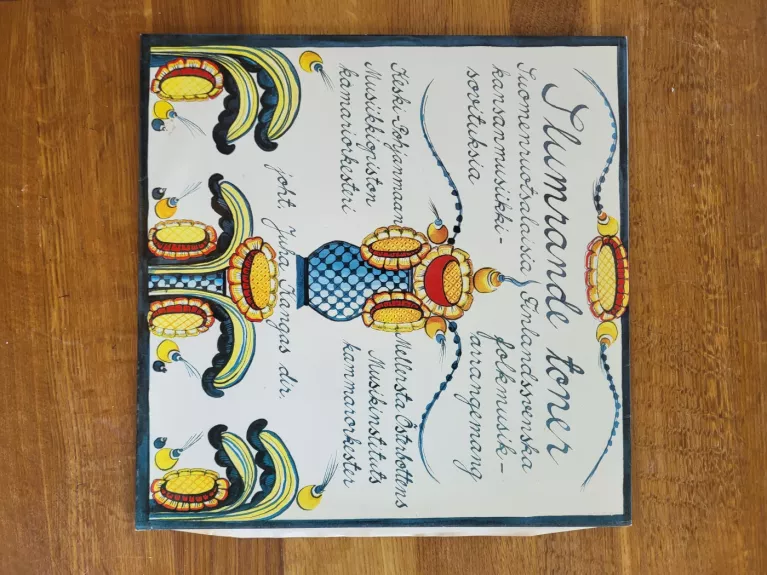 Slumrande toner
Suomenruotsalaisia
kansanmusiikki-
sovituksia
Finlandssvenska
folkmusik-
arrangemang
Keski-Pohjanmaan
Musiikkiopiston
kamariorkesteri
Mellersta Österbottens
Musikinstituts
kammarorkester
joht. Juha Kangas dir.